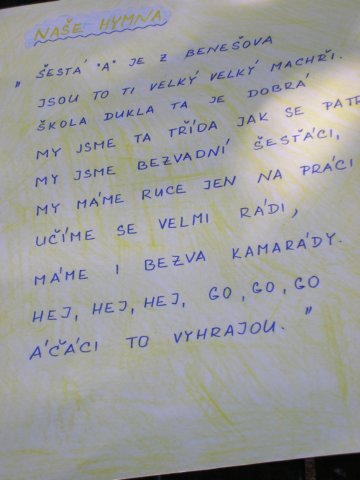 NAŠE HYMNA
" ŠESTÁ "A" JE Z BENEŠOVA
JSOU TO TI VELKÝ VELKÝ MACHŘI.
ŠKOLA DUKLA TA JE DOBRÁ
MY JSME TA TŘÍDA JAK SE PATŘ
MY JSME BEZVADNÍ ŠESŤÁCI,
MY MÁME RUCE JEN NA PRÁCI
UČÍME SE VELMI RÁDI,
MÁME I BEZVA KAMARÁDY.
HEJ, HEJ, HEJ, GO, GO, GO
ÁČÁCI TO VYHRAJOU. "